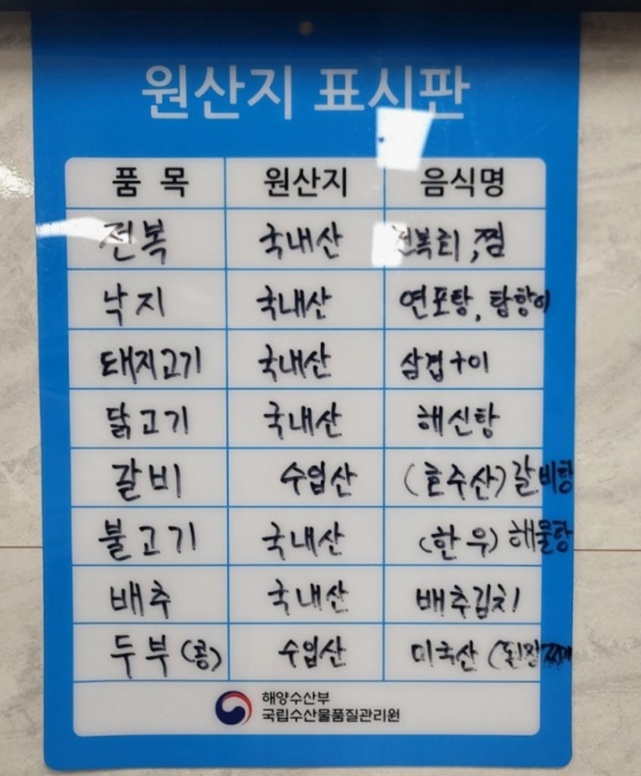 원산지 표시판
품 목 원산지 음식명
전복 국내산 전복회, 찜
낙지 국내산 연포탕, 탕탕이
돼지고기 국내산
닭고기 국내산 해신탕
갈비 수입산 (호주산) 갈비탕
불고기 국내산 (한우) 해물탕
배추 국내산 배추김치
두부 (콩) 수입산 미국산 (된장찌개
해양수산부
국립수산물품질관리원